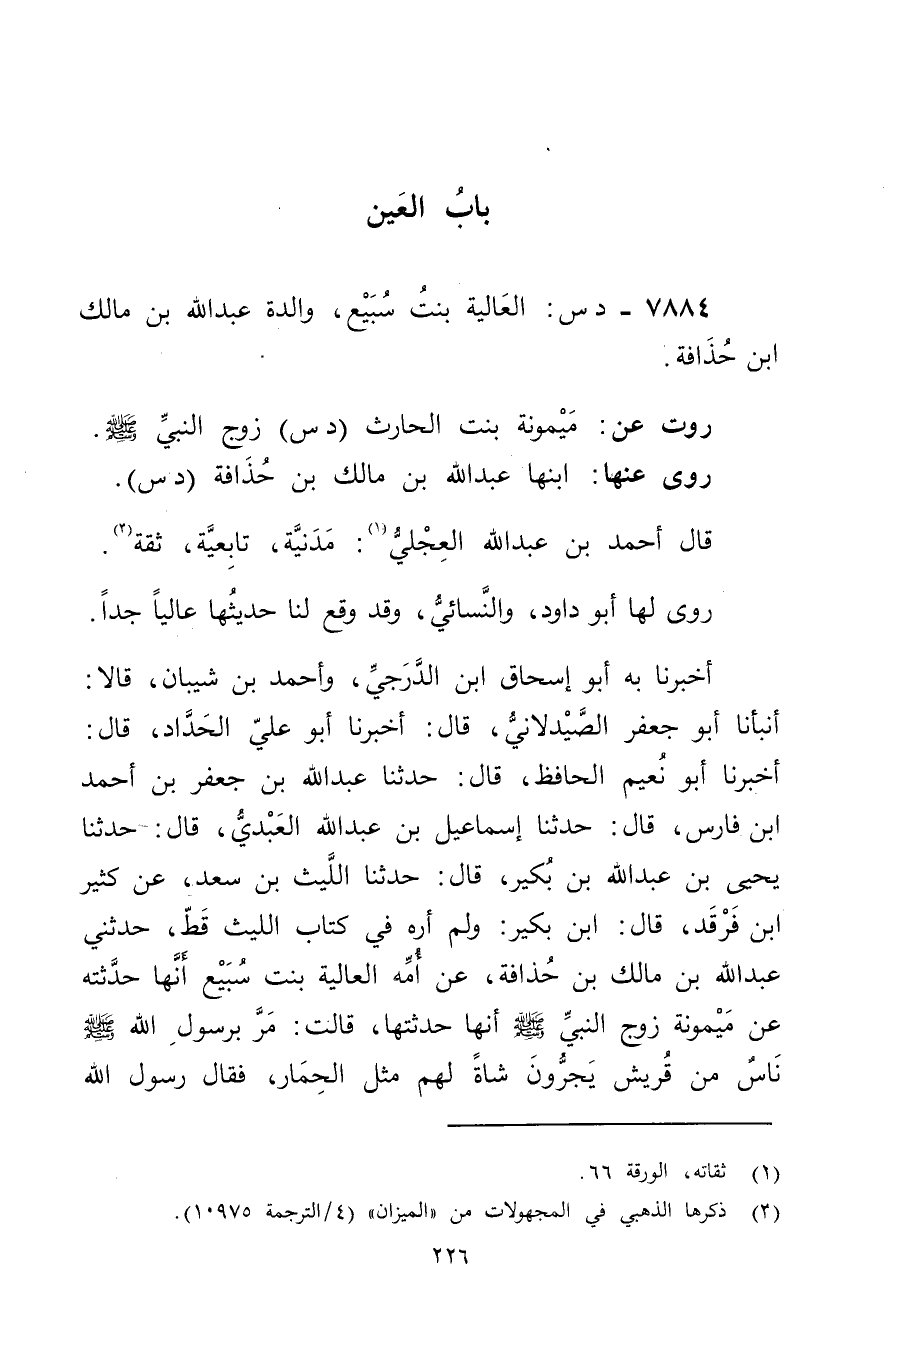 بابُ العَين
٧٨٨٤ - د س: العَالية بنتُ سُبَيْع، والدة عبدالله بن مالك
ابن حُذَافة.
روت عن: مَيْمونة بنت الحارث (د س) زوج النبيِّ ﷺ.
روى عنها: ابنها عبدالله بن مالك بن حُذَافة (د س).
قال أحمد بن عبدالله العِجْليُّ(١): مَدَنيَّة، تابِعيَّة، ثقة(٢).
روى لها أبو داود، والنَّسائيُّ، وقد وقع لنا حديثُها عالياً جداً.
أخبرنا به أبو إسحاق ابن الدَّرَجيِّ، وأحمد بن شيبان، قالا:
أنبأنا أبو جعفر الصَّيْدلانيُّ، قال: أخبرنا أبو عليّ الحَدَّاد، قال:
أخبرنا أبو نُعيم الحافظ، قال: حدثنا عبدالله بن جعفر بن أحمد
ابن فارس، قال: حدثنا إسماعيل بن عبدالله العَبْديُّ، قال: حدثنا
يحيى بن عبدالله بن بُكير، قال: حدثنا اللَّيث بن سعد، عن كثير
ابن فَرْقَد، قال: ابن بكير: ولم أره في كتاب الليث قَطّ، حدثني
عبدالله بن مالك بن حُذافة، عن أُمِّه العالية بنت سُبَيْع أَنَّها حدَّثته
عن مَيْمونة زوج النبيِّ ﷺ أنها حدثتها، قالت: مَرَّ برسولِ الله ﷺ
نَاسٌ من قُريش يَجرُّونَ شاةً لهم مثل الحِمَار، فقال رسول الله
(١) ثقاته، الورقة ٦٦.
(٢) ذكرها الذهبي في المجهولات من «الميزان» (٤/الترجمة ١٠٩٧٥).
٢٢٦